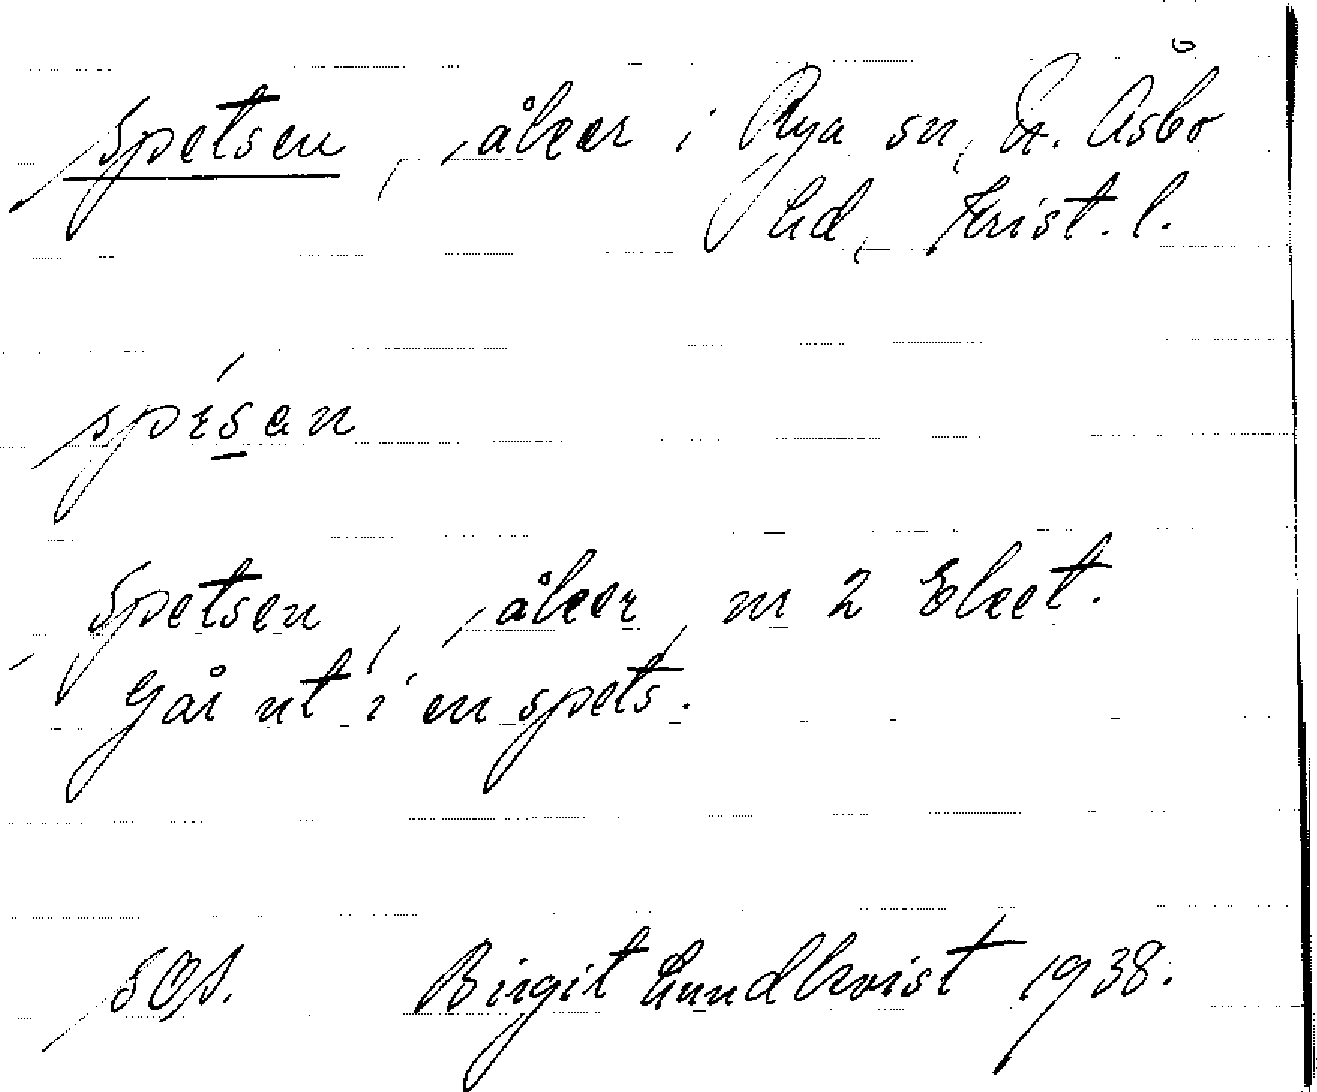 Spetsen, åker i Rya sn, Ö. Åsbo
hd, Krist. l.
spésan
Spetsen, åker, m 2 Eket.
Går ut i en spets.
SOS. Birgit Lundkvist 1938.